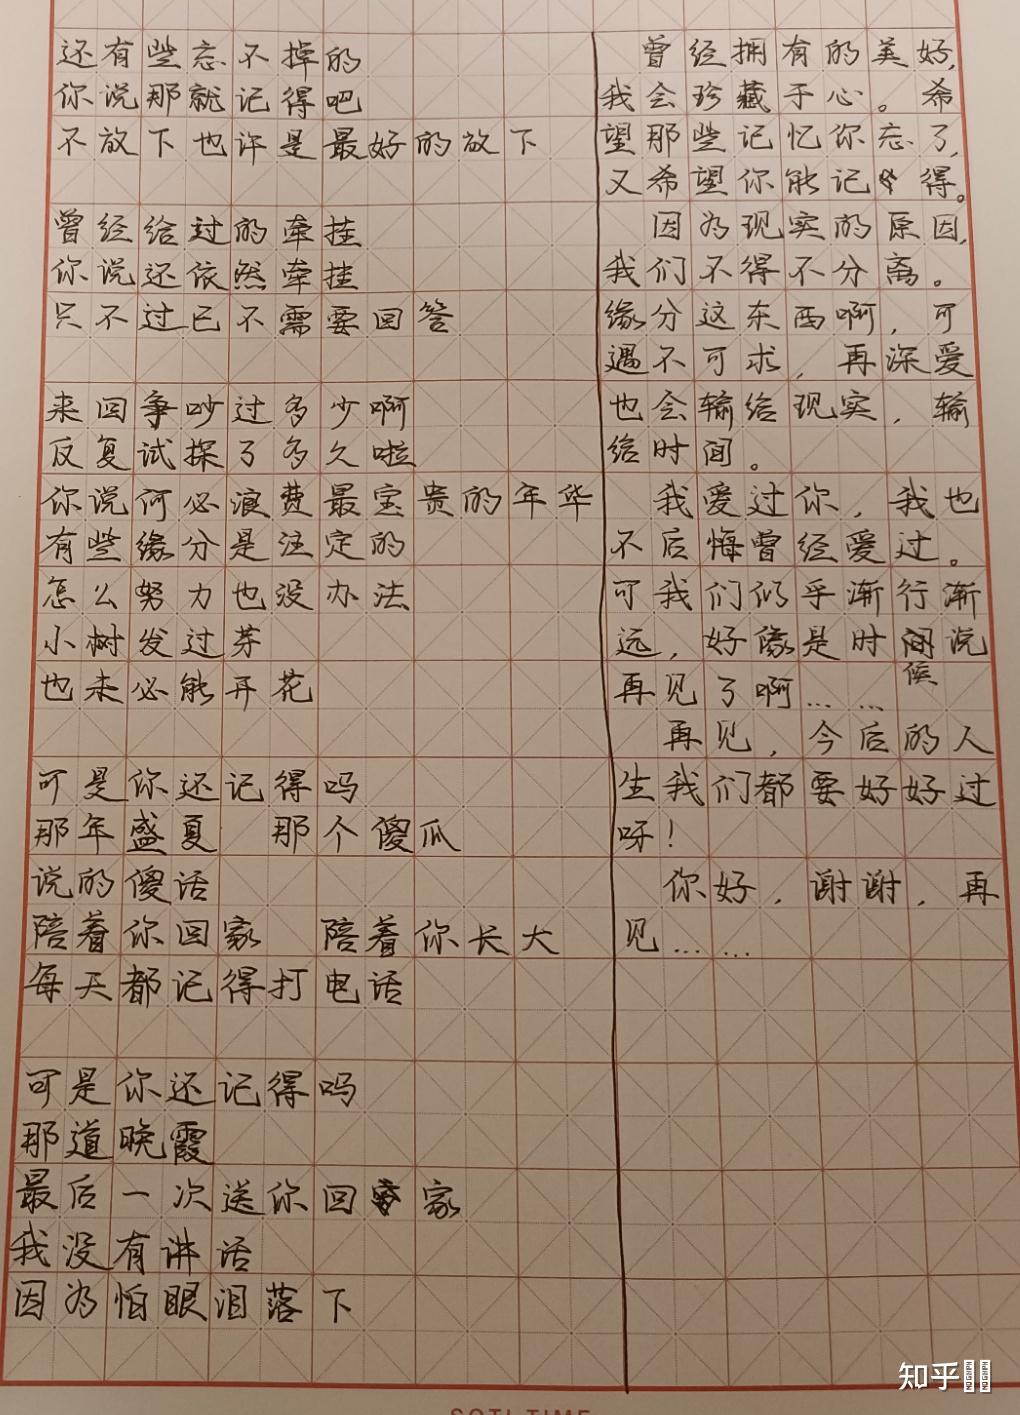 还有些忘不掉的
你说那就记得吧
不放下也许是最好的放下
曾经给过的牵挂
你说还依然牵挂
只不过已不需要回答
来回争吵过多少啊
反复试探了多久啦
你说何必浪费最宝贵的年华
有些缘分是注定的
怎么努力也没办法
小树发过芽
也未必能开花
可是你还记得吗
那年盛夏 那个傻瓜
说的傻话
陪着你回家 陪着你长大
每天都记得打电话
可是你还记得吗
那道晚霞
最后一次送你回家
我没有讲话
因为怕眼泪落下
曾经拥有的美好,
我会珍藏于心。希
望那些记忆你忘了,
又希望你能记得。
因为现实的原因,
我们不得不分离。
缘分这东西啊,可
遇不可求,再深爱
也会输给现实,输
给时间。
我爱过你,我也
不后悔曾经爱过。
可我们似乎渐行渐
远,好像是时候说
再见了啊……
再见,今后的人
生我们都要好好过
呀!
你好,谢谢,再
见……
知乎
SOTI TIME